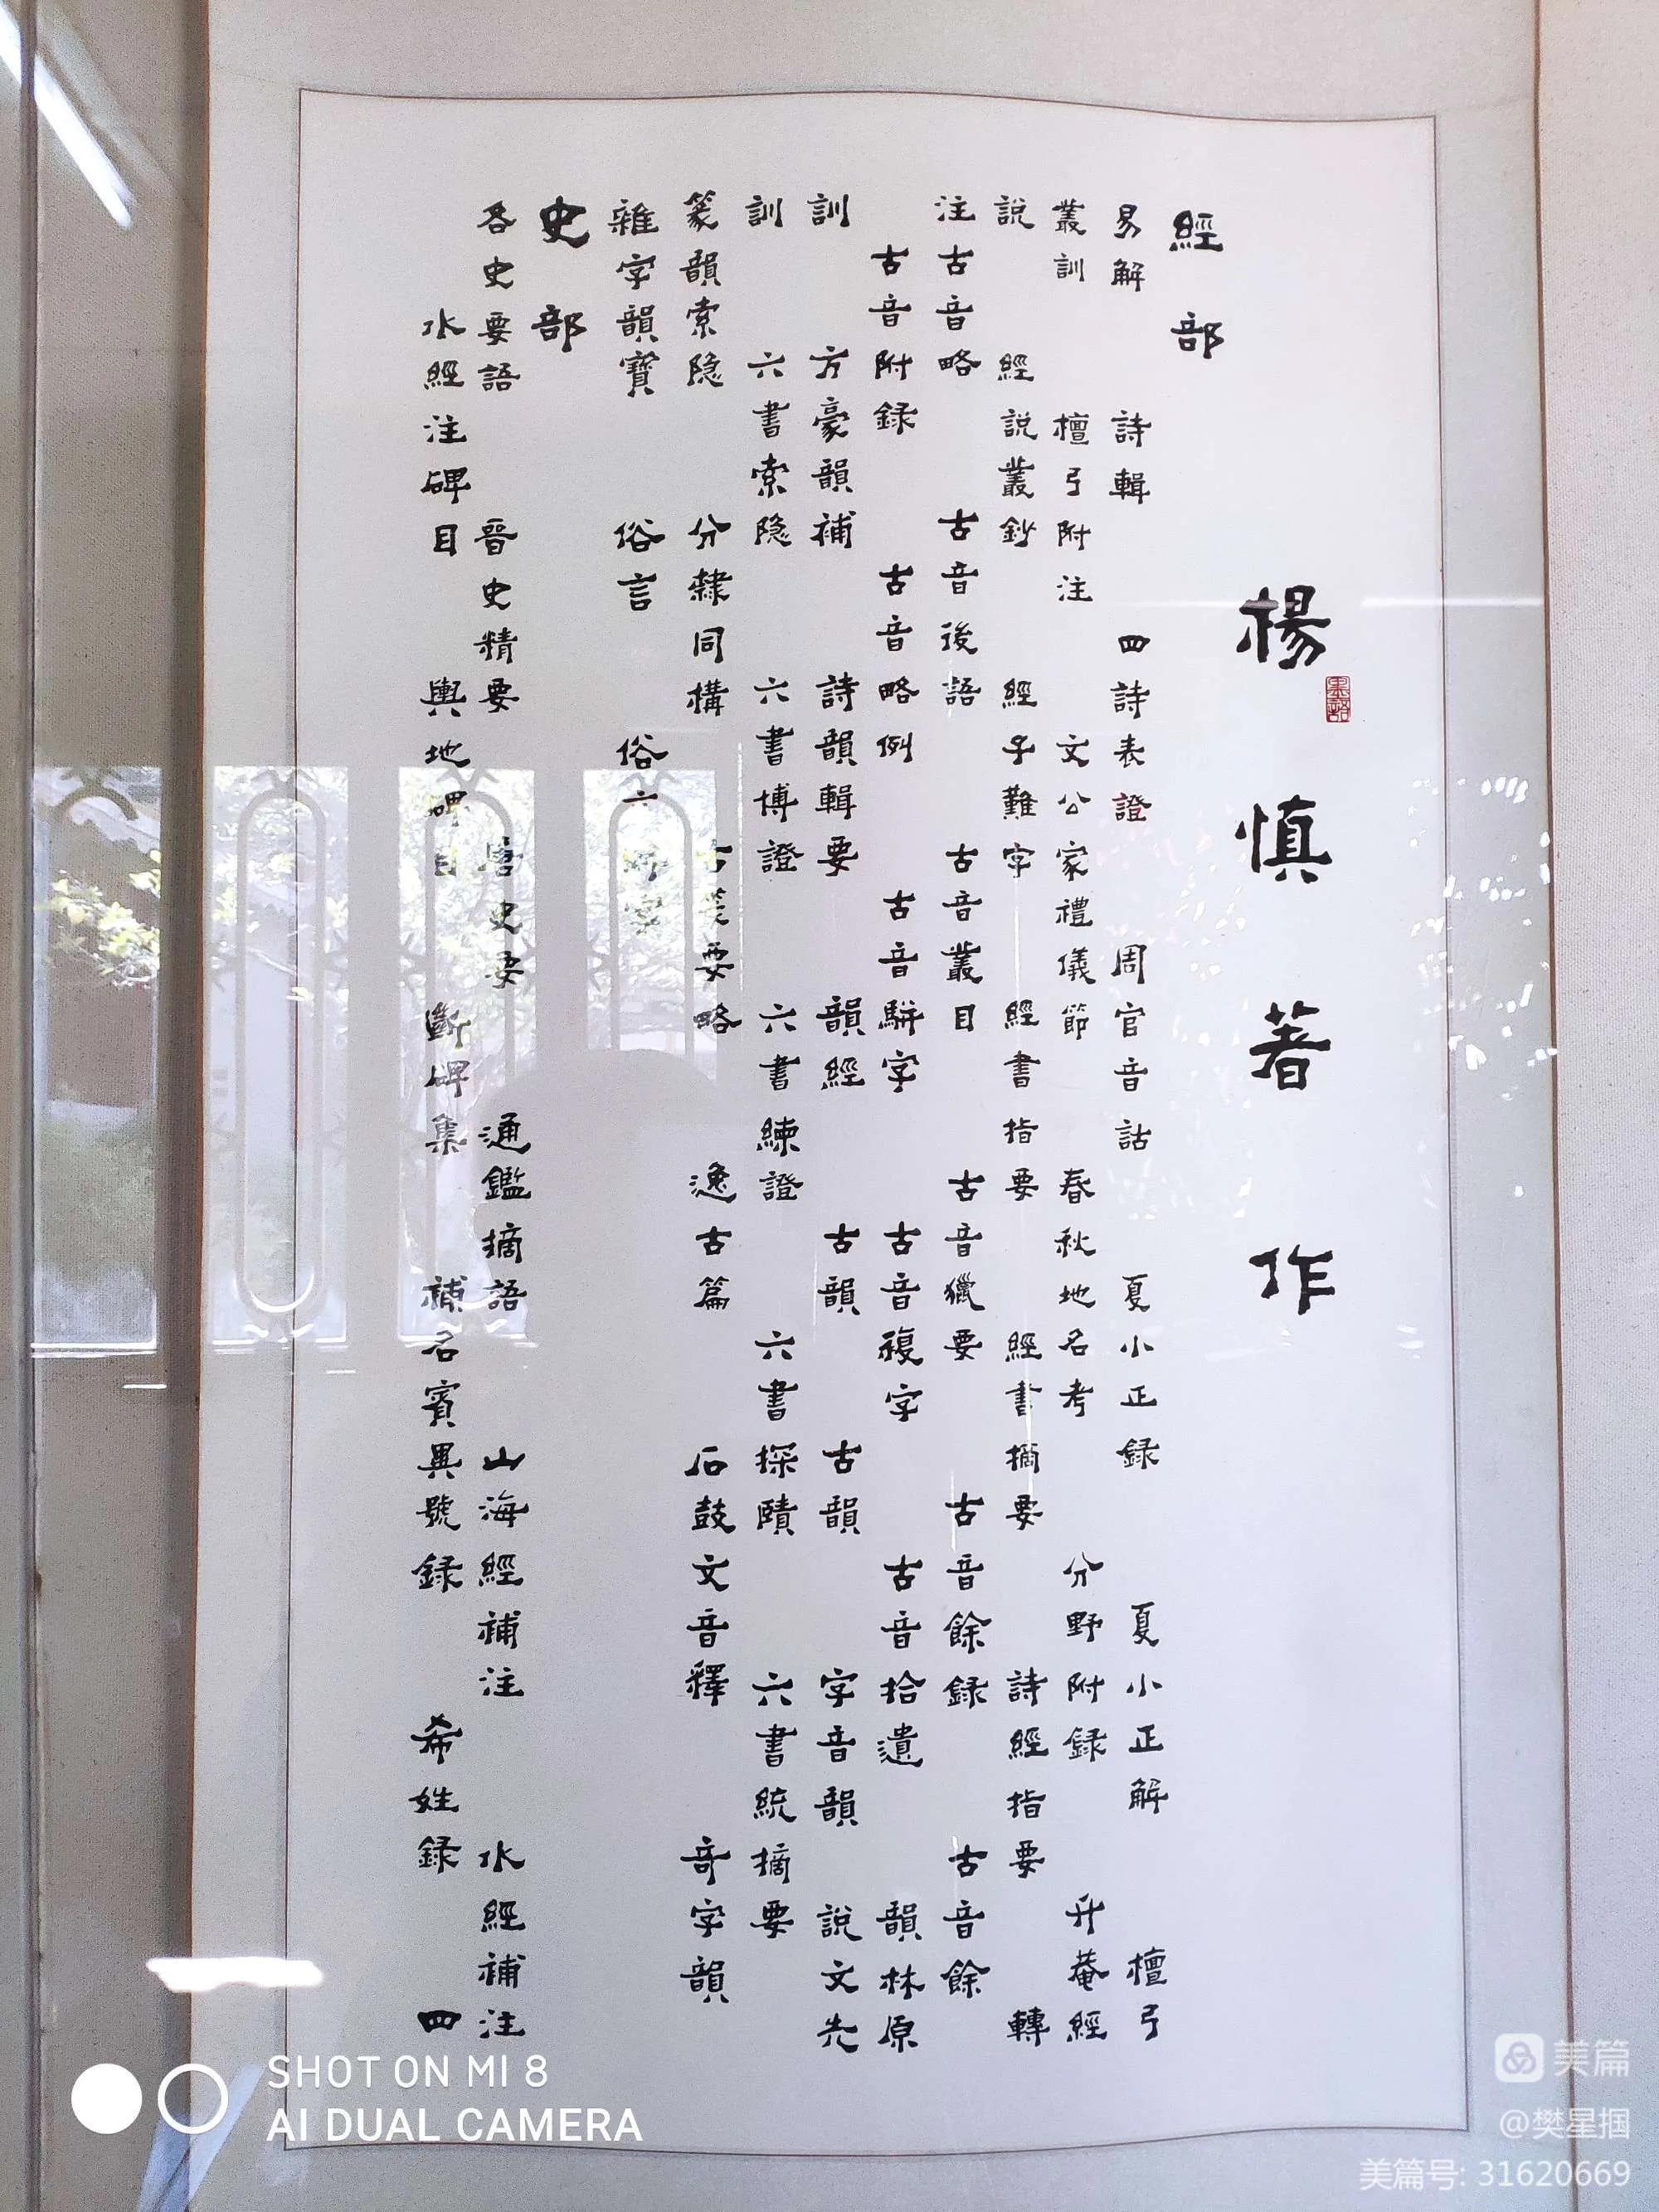 楊慎著作
經部
易解 詩輯 四詩表證 周官音詁 夏小正録 夏小正解 檀弓
叢訓 檀弓附注 文公家禮儀節 春秋地名考 分野附録 升菴經
說 經説叢鈔 經子難字 經書指要 經書摘要 詩經指要 轉
注古音略 古音後語 古音叢目 古音獵要 古音餘録 古音餘
古音附録 古音略例 古音駢字 古音複字 古音拾遺 韻林原
訓 方豪韻補 詩韻輯要 韻經 古韻 古韻 字音韻 說文先
訓 六書索隐 六書博證 六書練證 六書探賾 六書統摘要
篆韻索隐 分隸同構 古篆要略 逸古篇 石鼓文音釋 奇字韻
雜字韻寶 俗言 俗 字
史部
各史要語 晉史精要 唐史要 通鑑摘語 山海經補注 水經補注
水經注碑目 輿地碑目 斷碑集 補名賓異號録 希姓録 四
SHOT ON MI 8
AI DUAL CAMERA
美篇
@樊星掴
美篇号: 31620669